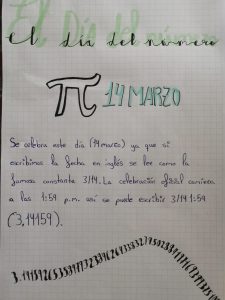 El Día del número
el día del número
π 14 MARZO
Se celebra este día (14 marzo) ya que si
escribimos la fecha en inglés se lee como la
famosa constante 3/14. La celebración oficial comienza
a las 1:59 p.m. así se puede escribir 3/14 1:59
(3,14159).
3.14159265358979323846264338327950288419716939937510